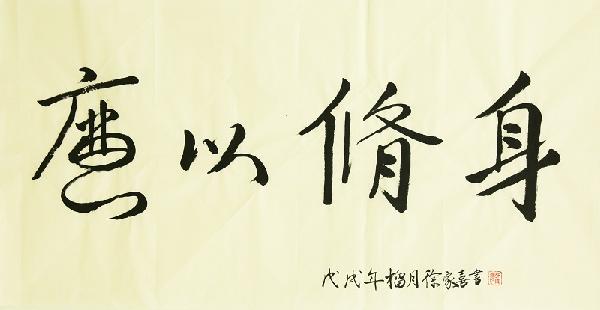 廉以脩身
戊戌年榴月徐家喜書